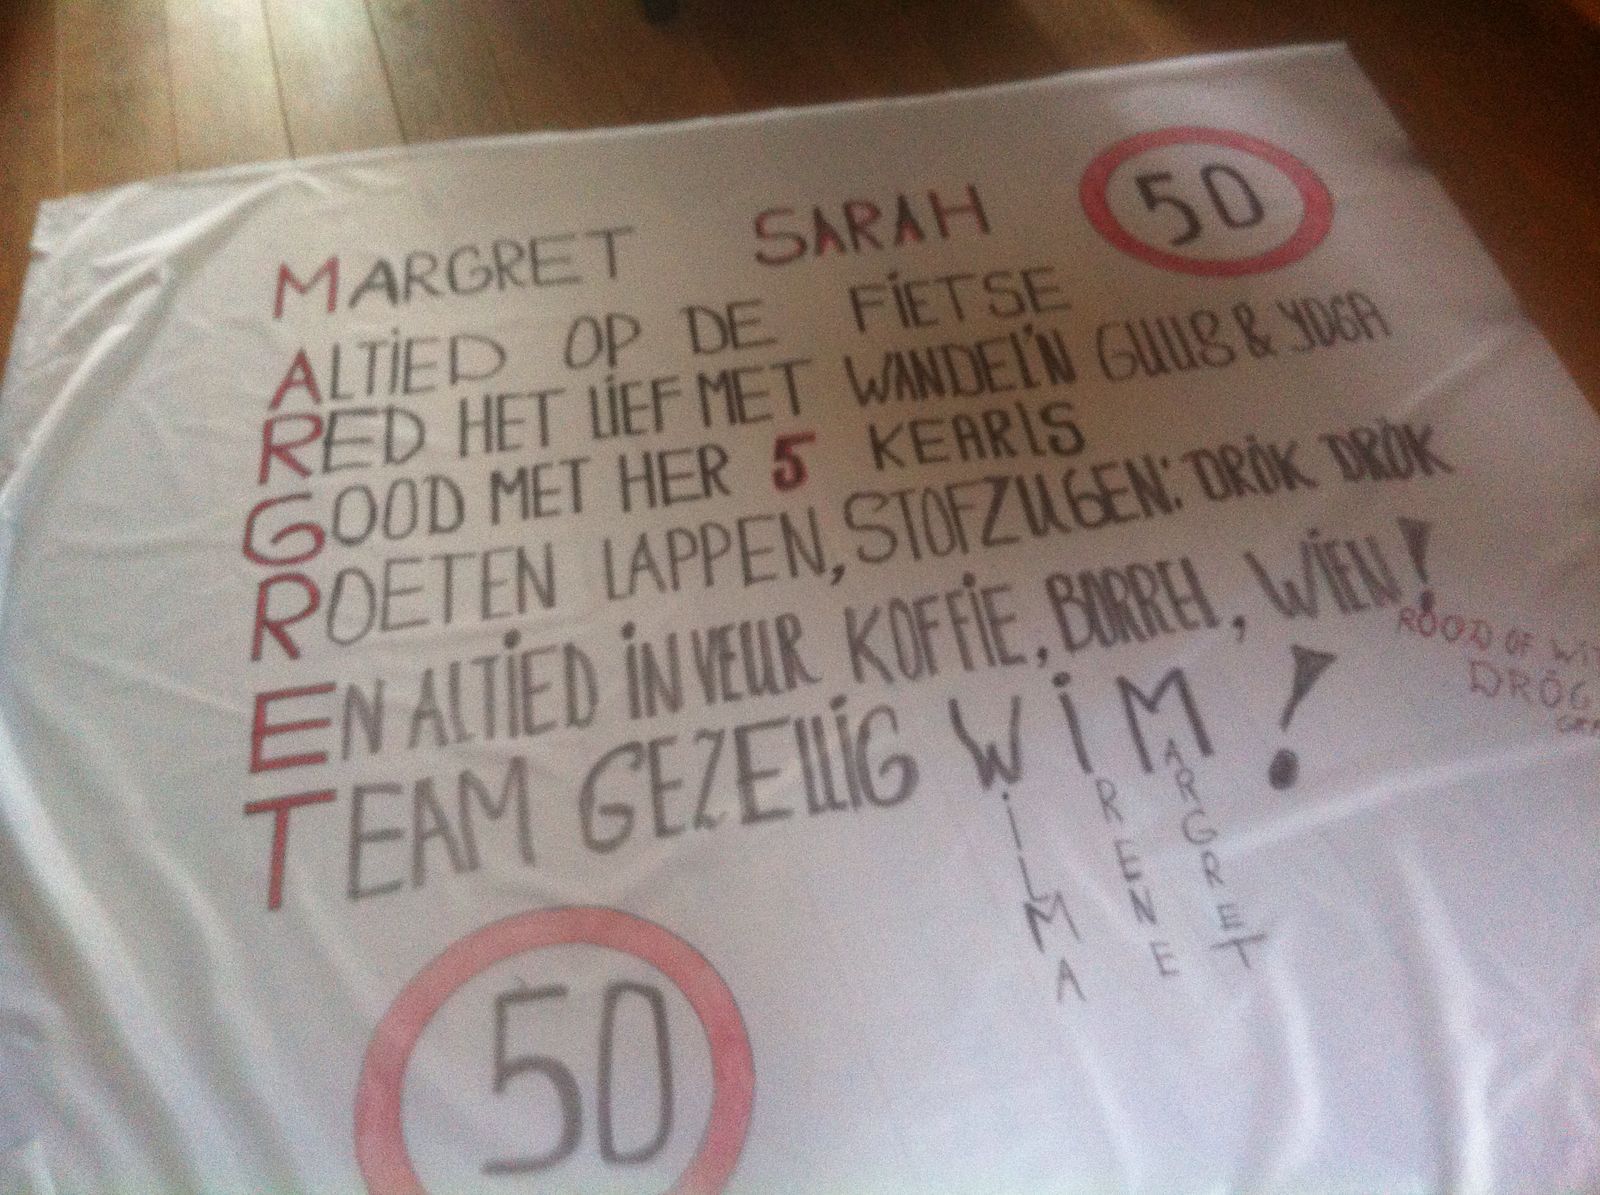 MARGRET SARAH 50
ALTIED OP DE FIETSE
RED HET LIEF MET WANDEL'N GUUS & YOGA
GOOD MET HER 5 KEARLS
ROETEN LAPPEN, STOFZUGEN: DRÖK DRÖK
EN ALTIED IN VEUR KOFFIE, BORREL, WIEN!
ROOD OF WIT
DRÖG
TEAM GEZELLIG WIM!
WILMA
IRENE
MARGRET
50